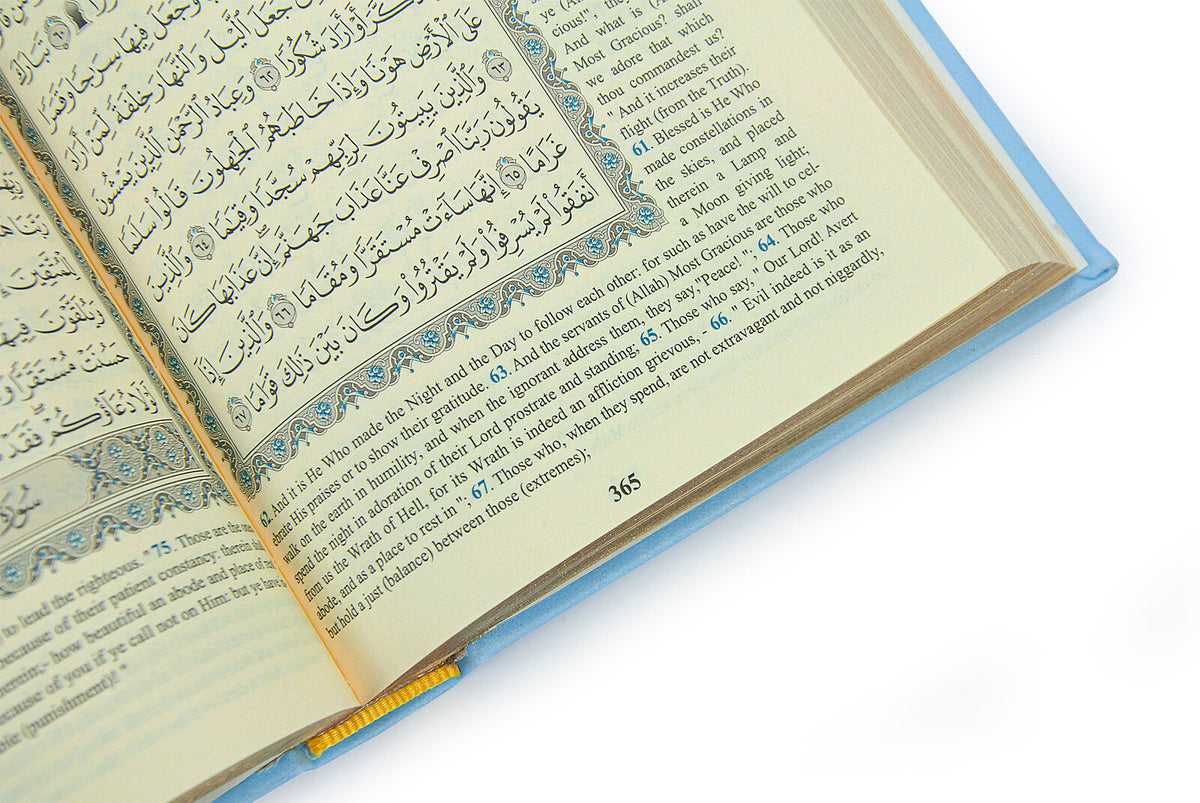 ٦٠ تَبَارَكَ
وَجَعَلَ فِيهَا سِرَاجًا وَقَمَرًا
جَعَلَ ٱلَّيْلَ وَٱلنَّهَارَ خِلْفَةً لِّمَنْ أَرَادَ
أَوْ أَرَادَ شُكُورًا ٦٢ وَعِبَادُ ٱلرَّحْمَٰنِ ٱلَّذِينَ يَمْشُونَ
عَلَى ٱلْأَرْضِ هَوْنًا وَإِذَا خَاطَبَهُمُ ٱلْجَٰهِلُونَ قَالُوا۟ سَلَٰمًا
٦٣ وَٱلَّذِينَ يَبِيتُونَ لِرَبِّهِمْ سُجَّدًا وَقِيَٰمًا ٦٤ وَٱلَّذِينَ
يَقُولُونَ رَبَّنَا ٱصْرِفْ عَنَّا عَذَابَ جَهَنَّمَ ۖ إِنَّ عَذَابَهَا كَانَ
غَرَامًا ٦٥ إِنَّهَا سَآءَتْ مُسْتَقَرًّا وَمُقَامًا ٦٦ وَٱلَّذِينَ إِذَآ
أَنفَقُوا۟ لَمْ يُسْرِفُوا۟ وَلَمْ يَقْتُرُوا۟ وَكَانَ بَيْنَ ذَٰلِكَ قَوَامًا ٦٧
cious!",
And what is
Most Gracious? shall
we adore that which
thou commandest us?
" And it increases their
flight (from the Truth).
61. Blessed is He Who
made constellations in
the skies, and placed
therein a Lamp and
a Moon giving light;
62. And it is He Who made the Night and the Day to follow each other: for such as have the will to cel-
ebrate His praises or to show their gratitude. 63. And the servants of (Allah) Most Gracious are those who
walk on the earth in humility, and when the ignorant address them, they say,"Peace! "; 64. Those who
spend the night in adoration of their Lord prostrate and standing; 65. Those who say, " Our Lord! Avert
from us the Wrath of Hell, for its Wrath is indeed an affliction grievous, 66. " Evil indeed is it as an
abode, and as a place to rest in "; 67. Those who, when they spend, are not extravagant and not niggardly,
but hold a just (balance) between those (extremes);
365
حَسُنَتْ مُسْتَقَرًّا
لَوْلَا دُعَآؤُكُمْ ۖ فَقَدْ
سُورَة
to lead the righteous. " 75. Those are the
because of their patient constancy: therein
therein;- how beautiful an abode and place of
because of you if ye call not on Him: but ye have
(punishment)! "